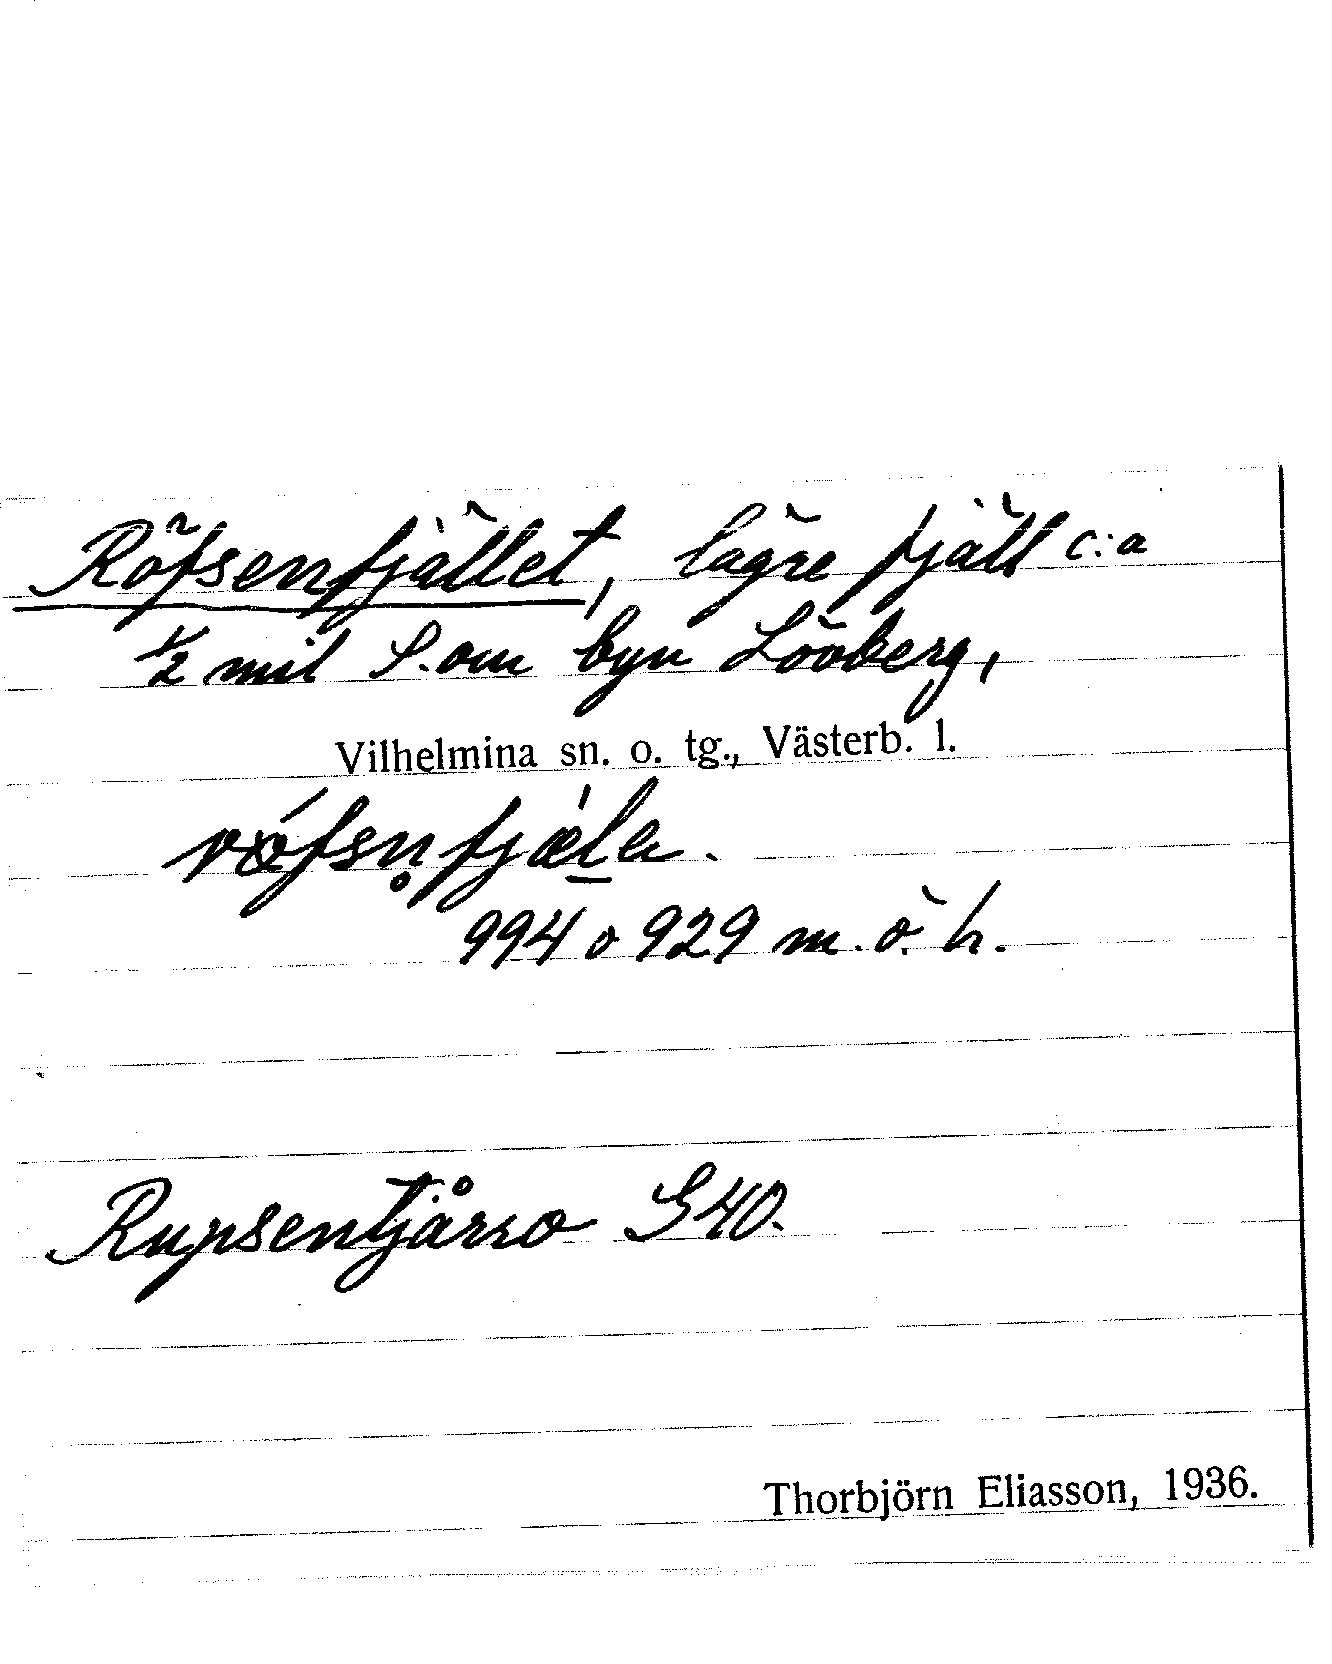 Röfsenfjället, lägre fjäll c:a
1/2 mil S. om byn Lövberg,
Vilhelmina sn. o. tg., Västerb. l.
994 o 929 m. ö. h.
Rupsentjårro S40.
Thorbjörn Eliasson, 1936.